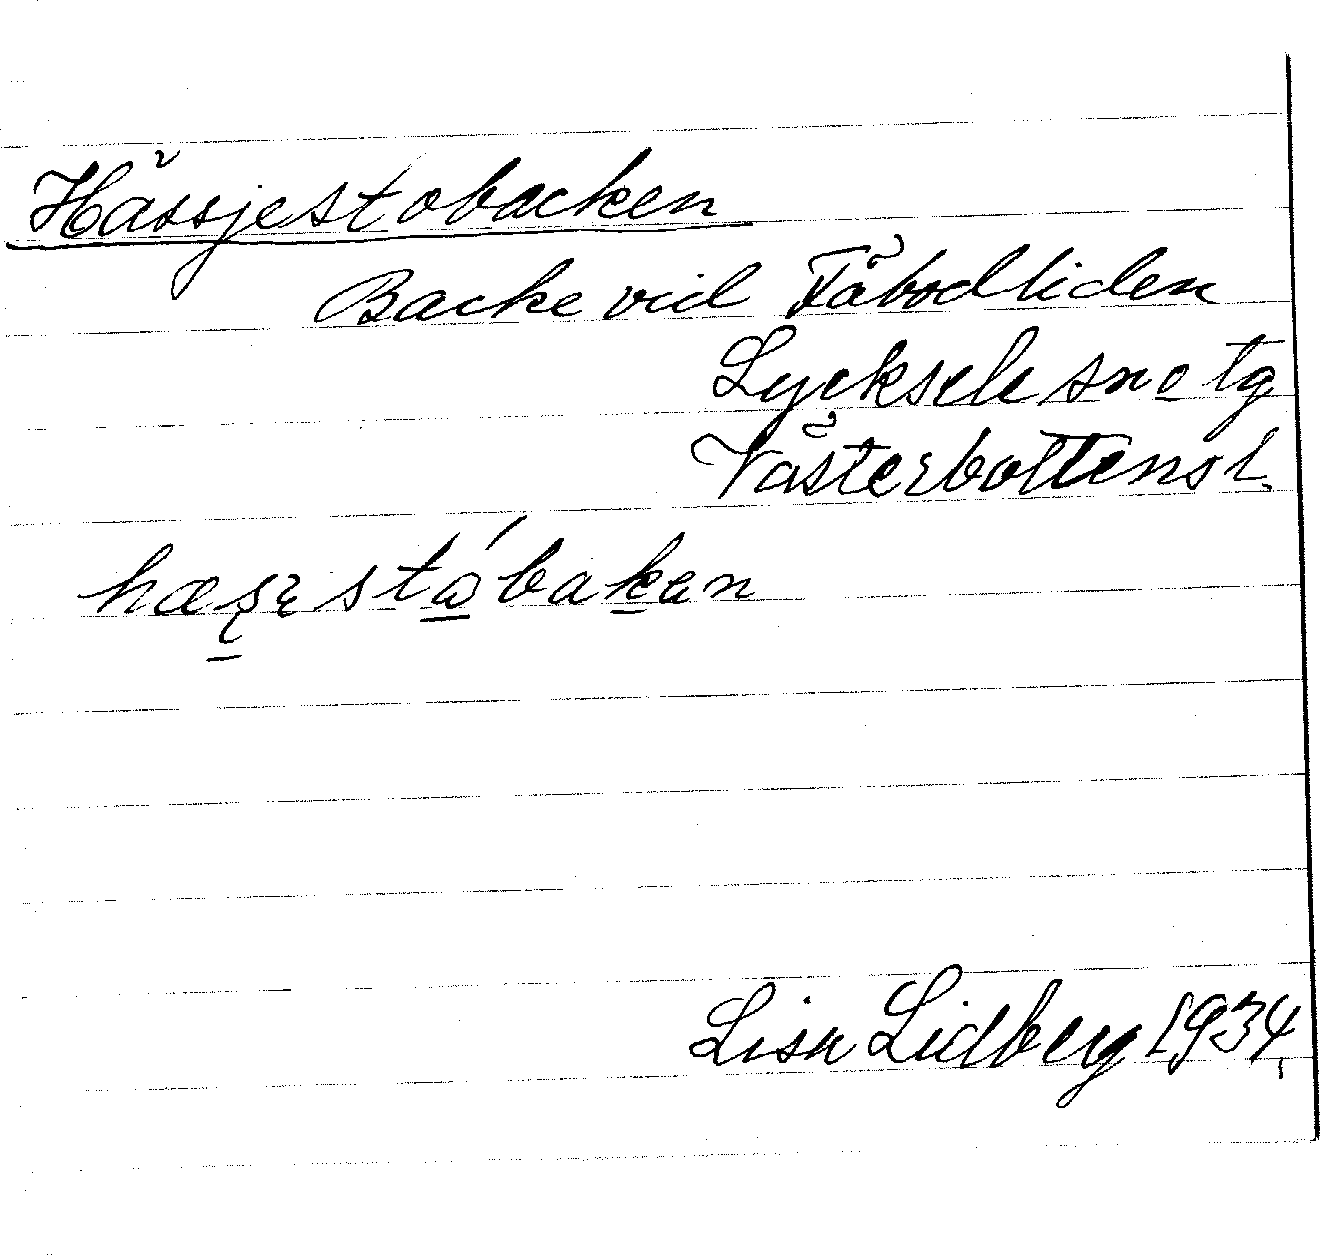 Hässjestobacken
Backe vid Fäbodliden
Lycksele sn o tg
Västerbottens l.
Lisa Lidberg 1934.